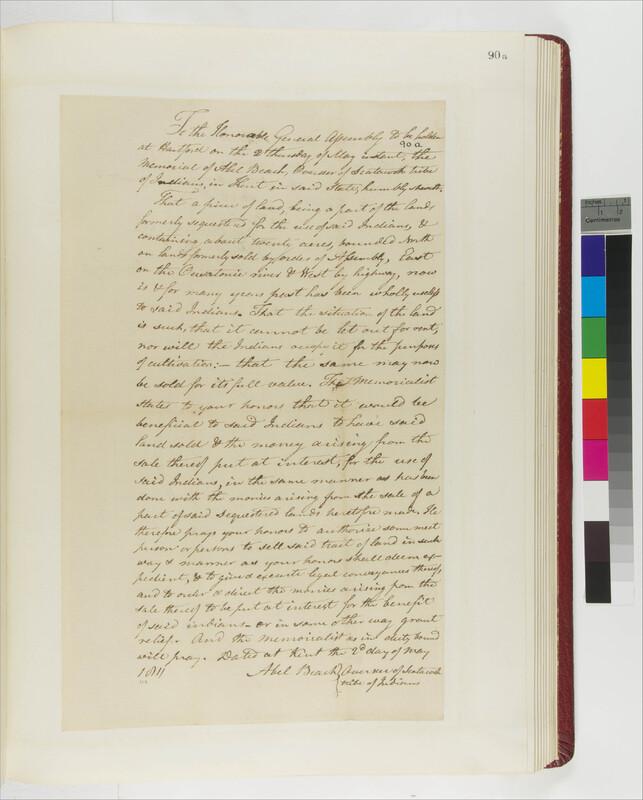 90a
To the Honorable General Assembly to be holden
90a
at Hartford on the 2d thursday of May instant, the
Memorial of Abel Beach, Overseer of Scatacook tribe
of Indians, in Kent in said State, humbly sheweth,
That a piece of land, being a part of the lands
formerly sequestered for the use of said Indians, &
containing about twenty acres, bounded North
on lands formerly sold by order of Assembly, East
on the Ousatonic river & West by highway, now
is & for many years past has been wholly useless
to said Indians. That the situation of the land
is such, that it cannot be let out for rent,
nor will the Indians occupy it for the purposes
of cultivation:— that the same may now
be sold for its full value. The Memorialist
states to your honors that it would be
beneficial to said Indians to have said
land sold & the money arising from the
sale thereof put at interest, for the use of
said Indians, in the same manner as has been
done with the monies arising from the sale of a
part of said sequestered lands heretofore made. He
therefore prays your honors to authorize some meet
person or persons to sell said tract of land in such
way & manner as your honors shall deem ex-
pedient, & to give & execute legal conveyances thereof,
and to order & direct the monies arising from the
sale thereof to be put at interest for the benefit
of said indians or in some other way grant
relief. And the memorialist as in duty bound
will pray. Dated at Kent the 2d day of May
1811
Abel Beach { Overseer of Scatacook
tribe of Indians
Inches
1 2
Centimetres